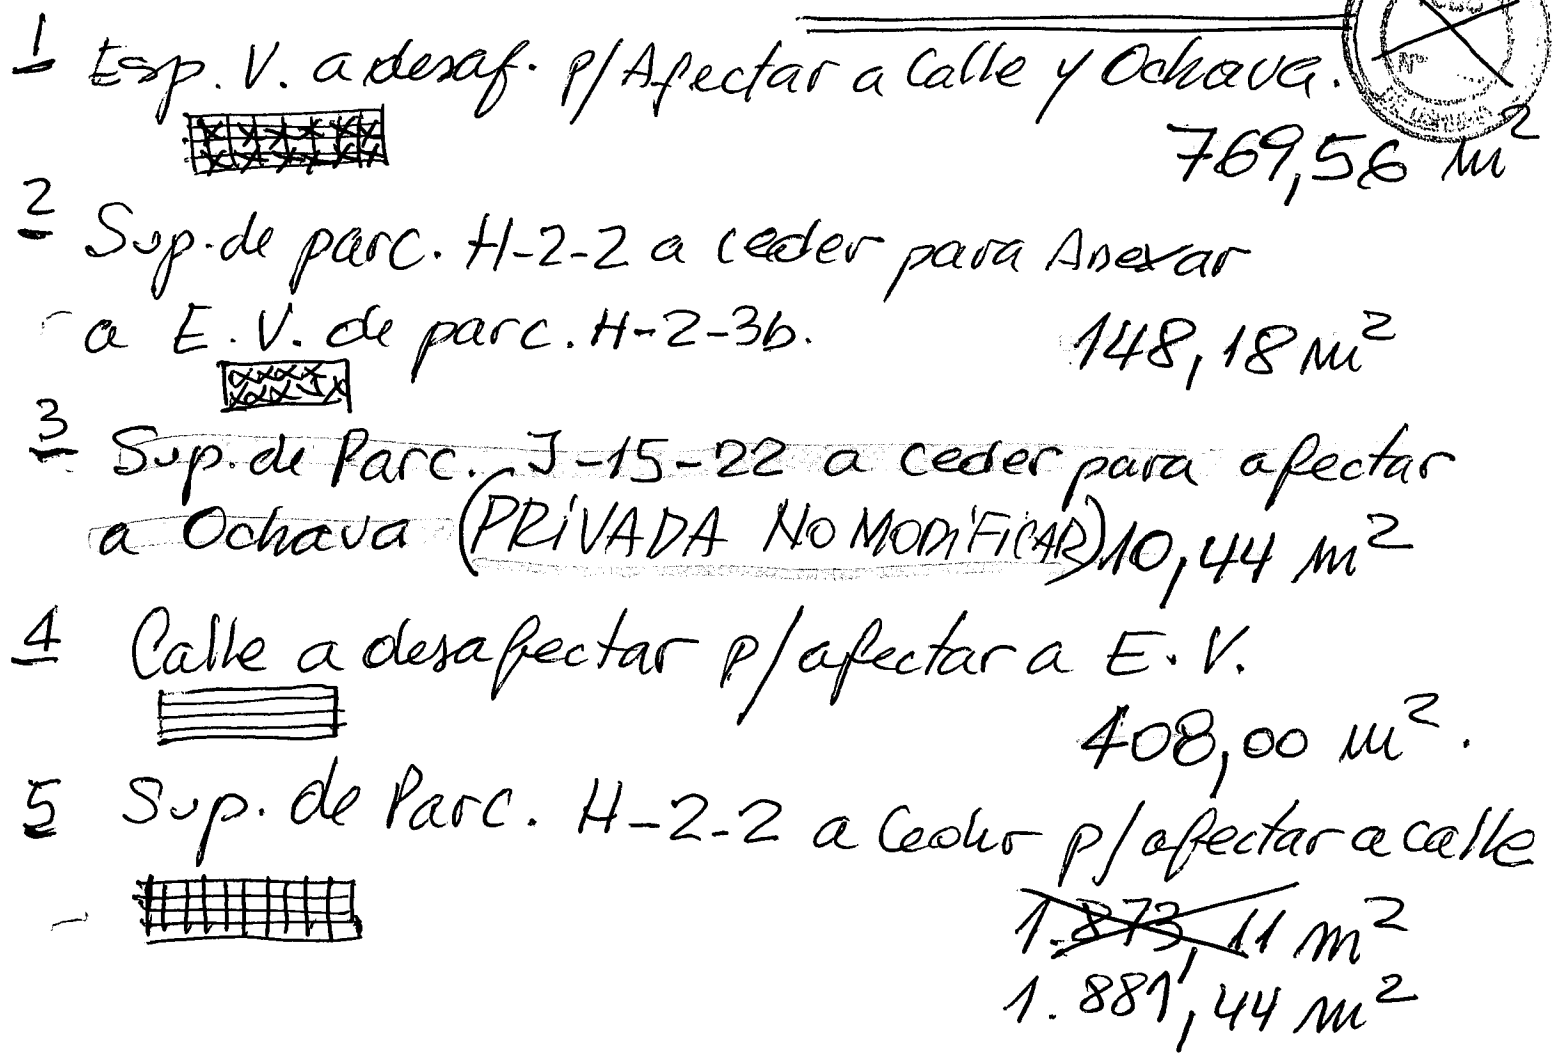 1 Esp. V. a desaf. p/Afectar a Calle y Ochava.
769,56 m²
2 Sup. de parc. H-2-2 a ceder para Anexar
a E.V. de parc. H-2-3b.
148,18 m²
3 Sup. de Parc. J-15-22 a ceder para afectar
a Ochava (PRIVADA NO MODIFICAR) 10,44 m²
4 Calle a desafectar p/afectar a E.V.
408,00 m².
5 Sup. de Parc. H-2-2 a Ceder p/afectar a calle
1.873,11 m²
1.881,44 m²